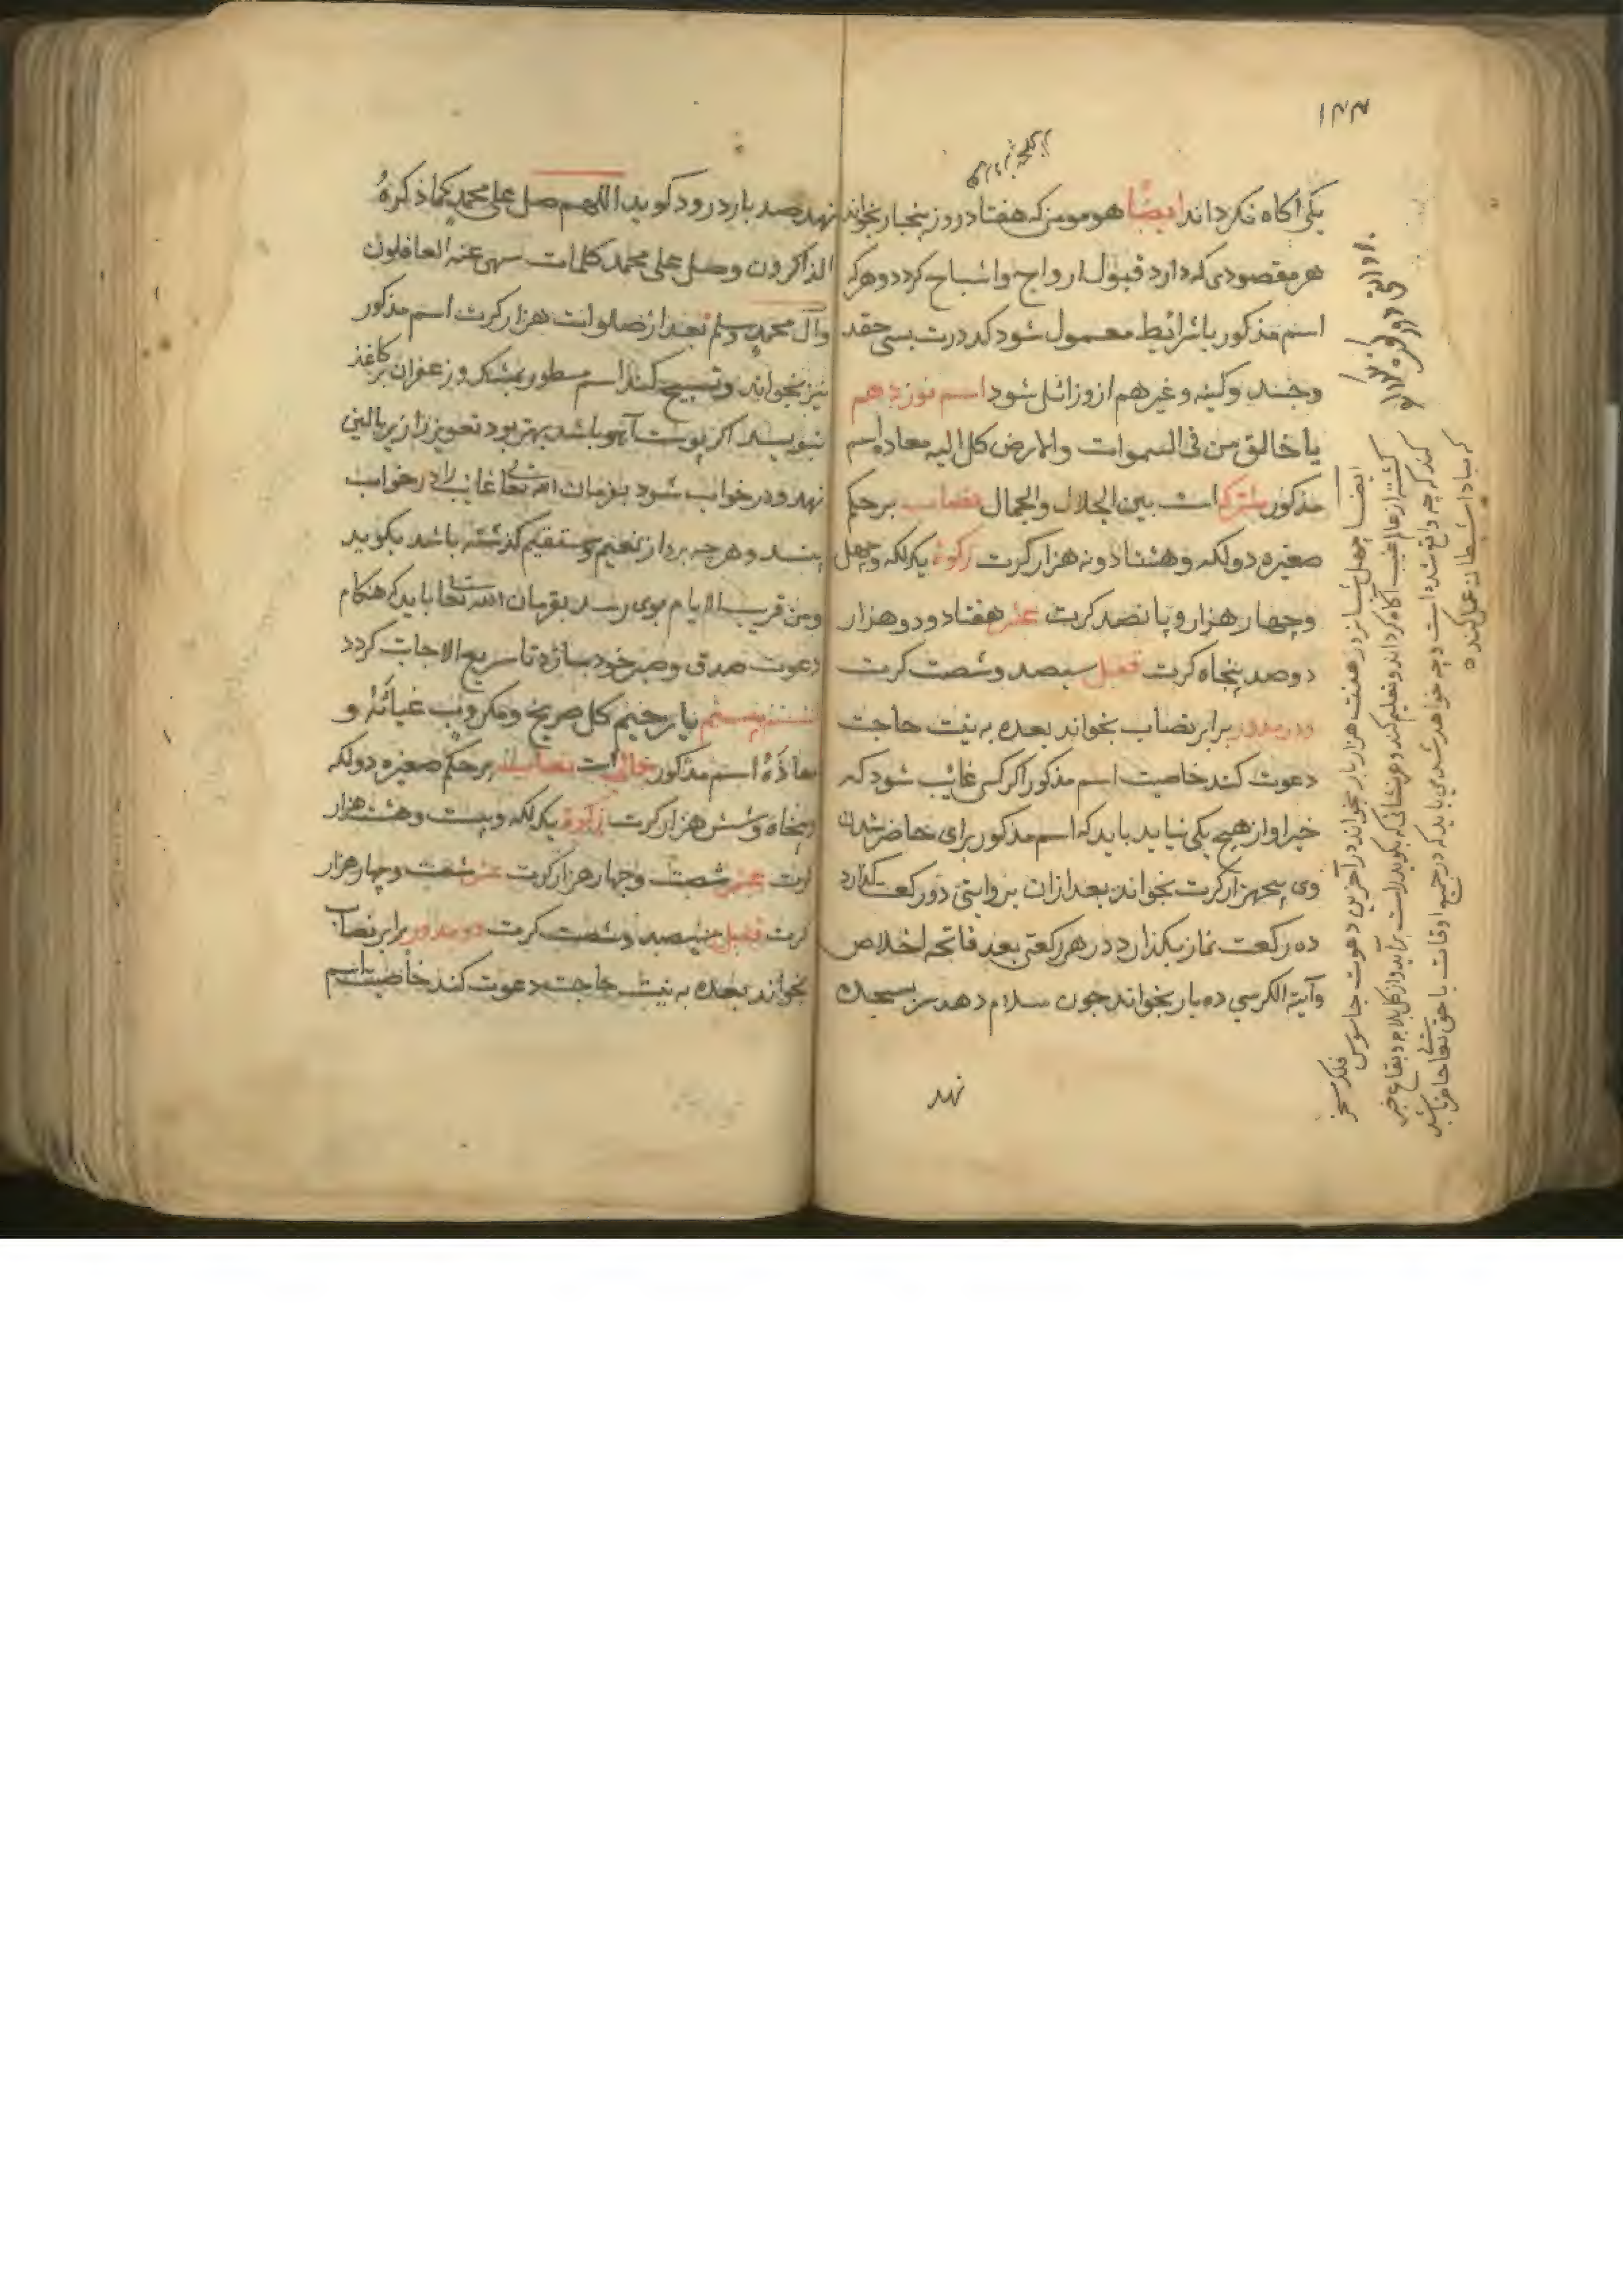 ۱۴۴
یکی آکاه نکرداند ایضًا هر مومن که هفتاد روز پنجبار بخواند
هر مقصودی که دارد قبول ارواح واشباح کردد وهرکه
اسم مذکور باشرائیط معمول شود کدرت بسی حقد
وحسد وکینه وغیرهم ازو زائل شود اسم نوزدهم
یا خالق من فی السموات والارض کل الیه معاده اسم
مذکور مشترک است بین الجلال والجمال نصاب برحکم
صغیره دولکه وهشتاد ونه هزار کرت زکوة یک لکه وچهل
وچهار هزار و پانصد کرت عشر هفتاد ودو هزار
دوصد پنجاه کرت قفل سیصد وشصت کرت
دور مدور برابر نصاب بخواند بعده به نیت حاجت
دعوت کند خاصیت اسم مذکور اکر کسی غائب شود که
خبر او از هیچ یکی نیاید باید که اسم مذکور برای حاضر شدن
وی پنجهزار کرت بخواند بعد ازان بروایتی دو رکعت کذارد
ده رکعت نماز بکذارد در هر رکعتی بعد فاتحه اخلاص
وآیة الکرسي ده بار بخواند چون سلام دهد سر بسجده
نهد
ایضا چهل شبانروز هفت هزار بار بخواند در آخرین دعوت جاسوس فلک مسخر
کشته از عالم غیب آکاه کرداند وتعلیم کند وهر نشانی که بکوید راست برآید واز کل بلاد وبقاع خبر
کند که چه واقع شده است وچه خواهد شدی باید که در جمیع اوقات با حق تعالی حاضر باشد
که مبادا شیطان عمل کند
نهد صد بار درود کوید اللهم صل علی محمد کما ذکره
الذاکرون وصل علی محمد کلمات سهی عنه الغافلون
وآل محمد وسلم بعد از صلوات هزار کرت اسم مذکور
نیز بخواند وتسبیح کند اسم مسطور بمشک وزعفران بر کاغذ
بنویسد اکر پوست آهو باشد بهتر بود تعویز را زیر بالین
نهد ودر خواب شود بفرمان الله تعالی غائب را در خواب
بیند وهرچه بر وی از نعیم وستقیم کذشته باشد بکوید
ومن قریب الایام بوی رسد بفرمان الله تعالی باید که هنکام
دعوت صدق وصبر خود سازد تا سریع الاجابت کردد
اسم بیستم یا رحیم کل صریخ ومکروب غیاثه و
معاذه اسم مذکور جمالی است نصاب برحکم صغیره دولکه
وپنجاه وشش هزار کرت زکوة یک لکه وبیست وهشت هزار
کرت عشر شصت وچهار هزار کرت عشر شصت وچهار هزار
کرت قفل سیصد وشصت کرت دور مدور برابر نصاب
بخواند بعده به نیت حاجت دعوت کند خاصیت اسم